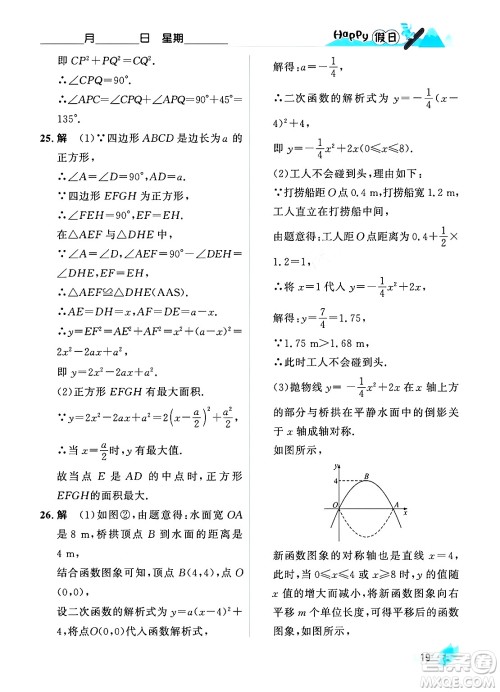 ____月____日 星期____
Happy 假日
即 CP²+PQ²=CQ²
∴∠CPQ=90°.
∴∠APC=∠CPQ+∠APQ=90°+45°=
135°.
25. 解 (1)∵四边形 ABCD 是边长为 a 的
正方形,
∴∠A=∠D=90°,AD=a.
∵四边形 EFGH 为正方形,
∴∠FEH=90°,EF=EH.
在△AEF 与△DHE 中,
∵∠A=∠D,∠AEF=∠DHE=90°-∠DEH,
EF=HE,
∴△AEF≌△DHE(AAS).
∴AE=DH=x,AF=DE=a-x.
∴y=EF²=AE²+AF²=x²+(a-x)²=
2x²-2ax+a²,
即 y=2x²-2ax+a².
(2)正方形 EFGH 有最大面积.
∵y=2x²-2ax+a²=2(x-a/2)²+a²/2,
∴当 x=a/2 时,y 有最大值.
故当点 E 是 AD 的中点时,正方形
EFGH的面积最大.
26. 解 (1)如图②,由题意得:水面宽 OA
是 8 m,桥拱顶点 B 到水面的距离是
4 m,
结合函数图象可知,顶点 B(4,4),点 O
(0,0),
设二次函数的解析式为 y=a(x-4)²+4,
将点 O(0,0)代入函数解析式,
解得:a=-1/4,
∴二次函数的解析式为 y=-1/4(x-
4)²+4,
即 y=-1/4x²+2x(0≤x≤8).
(2)工人不会碰到头,理由如下:
∵打捞船距 O 点 0.4 m,打捞船宽 1.2 m,
工人直立在打捞船中间,
由题意得:工人距 O 点距离为 0.4+1/2×
1.2=1,
∴将 x=1 代入 y=-1/4x²+2x,
解得:y=7/4=1.75,
∵1.75 m>1.68 m,
∴此时工人不会碰到头.
(3)抛物线 y=-1/4x²+2x 在 x 轴上方
的部分与桥拱在平静水面中的倒影关
于 x 轴成轴对称.
如图所示,
y
4
B
O
A
x
新函数图象的对称轴也是直线 x=4,
此时,当 0≤x≤4 或 x≥8 时,y 的值随
x 值的增大而减小,将新函数图象向右
平移 m 个单位长度,可得平移后的函数
图象,如图所示,
19